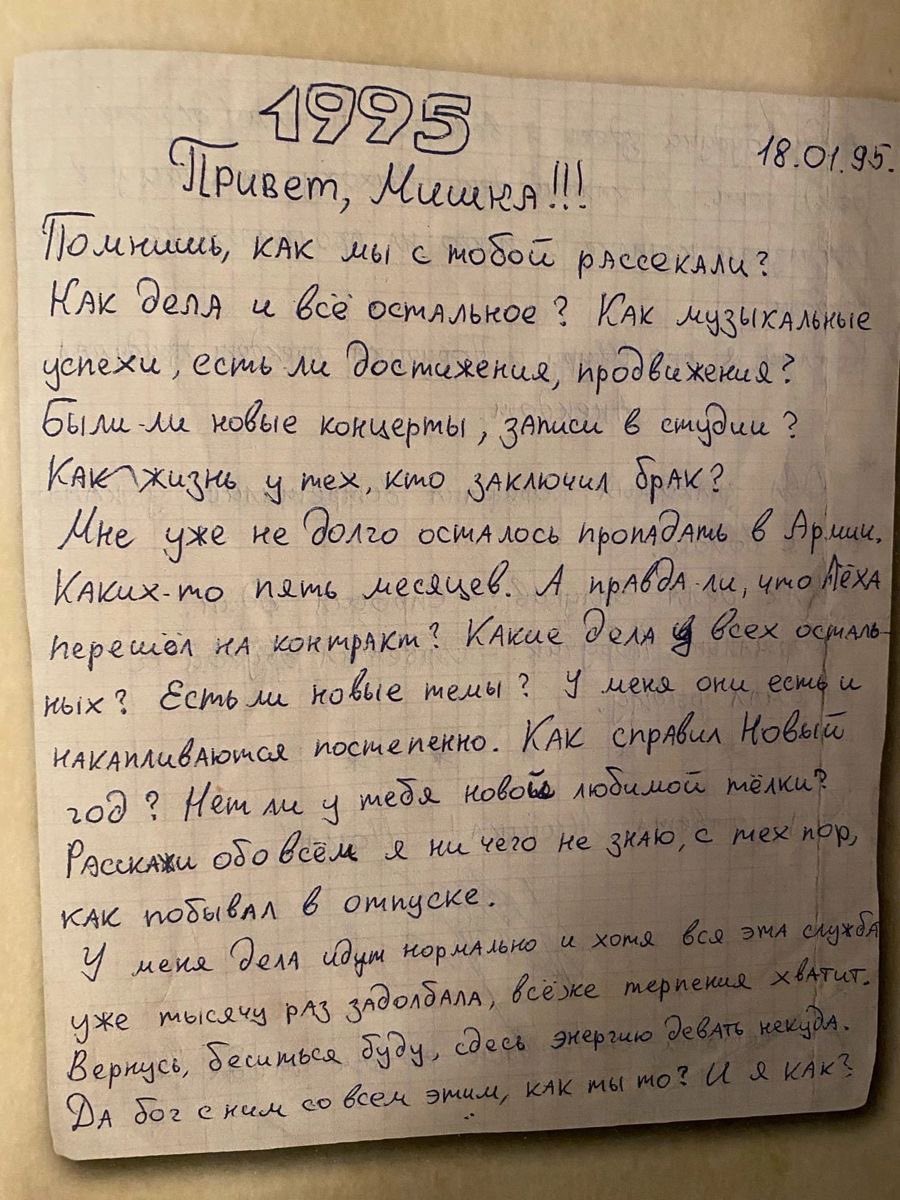 1995
18.01.95.
Привет, Мишка!!!
Помнишь, как мы с тобой рассекали?
Как дела и всё остальное? Как музыкальные
успехи, есть ли достижения, продвижения?
Были-ли новые концерты, записи в студии?
Как жизнь у тех, кто заключил брак?
Мне уже не долго осталось пропадать в Армии.
Каких-то пять месяцев. А правда-ли, что Лёха
перешёл на контракт? Какие дела у всех осталь-
ных? Есть ли новые темы? У меня они есть и
накапливаются постепенно. Как справил Новый
год? Нет ли у тебя новой любимой тёлки?
Расскажи обо всём я ни чего не знаю, с тех пор,
как побывал в отпуске.
У меня дела идут нормально и хотя вся эта служба
уже тысячу раз задолбала, всёже терпения хватит.
Вернусь, беситься буду, сдесь энергию девать некуда.
Да бог с ним со всем этим, как ты то? И я как?